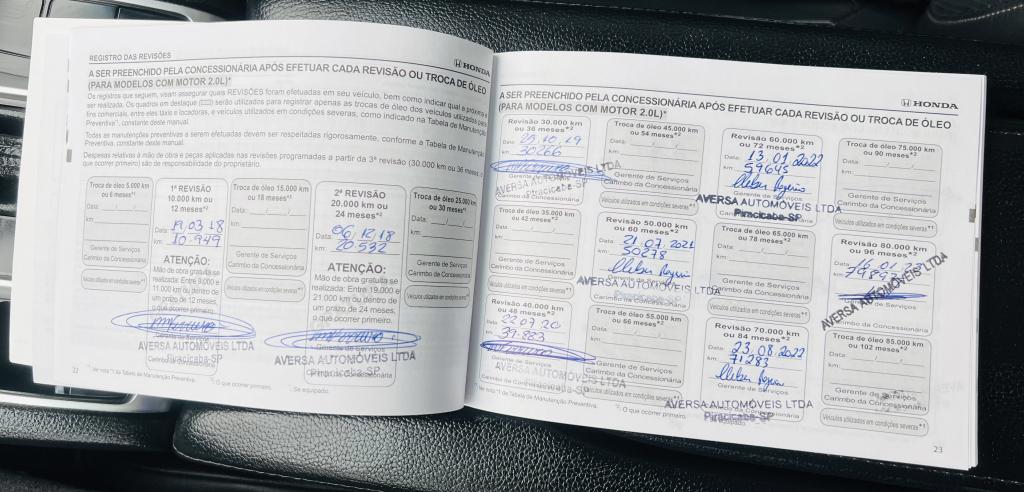 REGISTRO DAS REVISÕES
HONDA
A SER PREENCHIDO PELA CONCESSIONÁRIA APÓS EFETUAR CADA REVISÃO OU TROCA DE ÓLEO
(PARA MODELOS COM MOTOR 2.0L)*
Os registros que seguem, visam assegurar quais REVISÕES foram efetuadas em seu veículo, bem como indicar qual a próxima a
ser realizada. Os quadros em destaque serão utilizados para registrar apenas as trocas de óleo dos veículos utilizados para
fins comerciais, entre eles táxis e locadoras, e veículos utilizados em condições severas, como indicado na Tabela de Manutenção
Preventiva*¹, constante deste manual.
Todas as manutenções preventivas a serem efetuadas devem ser respeitadas rigorosamente, conforme a Tabela de Manutenção
Preventiva, constante deste manual.
Despesas relativas à mão de obra e peças aplicadas nas revisões programadas a partir da 3ª revisão (30.000 km ou 36 meses, o
que ocorrer primeiro) são de responsabilidade do proprietário.
Troca de óleo 5.000 km
ou 6 meses*²
Data:
km:
Gerente de Serviços
Carimbo da Concessionária
Veículos utilizados em condições severas*¹
1ª REVISÃO
10.000 km ou
12 meses*²
Data: 19.03.18
km: 10.949
ATENÇÃO:
Mão de obra gratuita se
realizada: Entre 9.000 e
11.000 km ou dentro de
um prazo de 12 meses,
o que ocorrer primeiro.
Gerente de Serviços
AVERSA AUTOMÓVEIS LTDA
Piracicaba-SP
Troca de óleo 15.000 km
ou 18 meses*²
Data:
km:
Gerente de Serviços
Carimbo da Concessionária
Veículos utilizados em condições severas*¹
2ª REVISÃO
20.000 km ou
24 meses*²
Data: 06.12.18
km: 20.532
ATENÇÃO:
Mão de obra gratuita se
realizada: Entre 19.000 e
21.000 km ou dentro de
um prazo de 24 meses,
o que ocorrer primeiro.
Gerente de Serviços
AVERSA AUTOMÓVEIS LTDA
Piracicaba-SP
Troca de óleo 25.000 km
ou 30 meses*²
Data:
km:
Gerente de Serviços
Carimbo da Concessionária
Veículos utilizados em condições severas*¹
*¹: Ver nota *1 da Tabela de Manutenção Preventiva. *²: O que ocorrer primeiro. *: Se equipado.
HONDA
A SER PREENCHIDO PELA CONCESSIONÁRIA APÓS EFETUAR CADA REVISÃO OU TROCA DE ÓLEO
(PARA MODELOS COM MOTOR 2.0L)*
Revisão 30.000 km
ou 36 meses*²
Data: 25.10.19
km: 30266
Gerente de Serviços
AVERSA AUTOMÓVEIS LTDA
Piracicaba-SP
Troca de óleo 45.000 km
ou 54 meses*²
Data:
km:
Gerente de Serviços
Carimbo da Concessionária
Veículos utilizados em condições severas*¹
Revisão 60.000 km
ou 72 meses*²
Data: 13.01.2022
km: 59645
AVERSA AUTOMÓVEIS LTDA
Piracicaba-SP
Troca de óleo 75.000 km
ou 90 meses*²
Data:
km:
Gerente de Serviços
Carimbo da Concessionária
Veículos utilizados em condições severas*¹
Troca de óleo 35.000 km
ou 42 meses*²
Data:
km:
Gerente de Serviços
Carimbo da Concessionária
Veículos utilizados em condições severas*¹
Revisão 50.000 km
ou 60 meses*²
Data: 21.07.2021
km: 50278
AVERSA AUTOMÓVEIS LTDA
Carimbo da Concessionária
Troca de óleo 65.000 km
ou 78 meses*²
Data:
km:
Gerente de Serviços
Carimbo da Concessionária
Veículos utilizados em condições severas*¹
Revisão 80.000 km
ou 96 meses*²
Data: 16.01.23
km: 79893
AVERSA AUTOMÓVEIS LTDA
Revisão 40.000 km
ou 48 meses*²
Data: 02.07.20
km: 39.883
Gerente de Serviços
AVERSA AUTOMÓVEIS LTDA
Piracicaba-SP
Troca de óleo 55.000 km
ou 66 meses*²
Data:
km:
Gerente de Serviços
Carimbo da Concessionária
Veículos utilizados em condições severas*¹
Revisão 70.000 km
ou 84 meses*²
Data: 23.08.2022
km: 71283
AVERSA AUTOMÓVEIS LTDA
Piracicaba-SP
Troca de óleo 85.000 km
ou 102 meses*²
Data:
km:
Gerente de Serviços
Carimbo da Concessionária
Veículos utilizados em condições severas*¹
*¹: Ver nota *1 da Tabela de Manutenção Preventiva. *²: O que ocorrer primeiro.
23